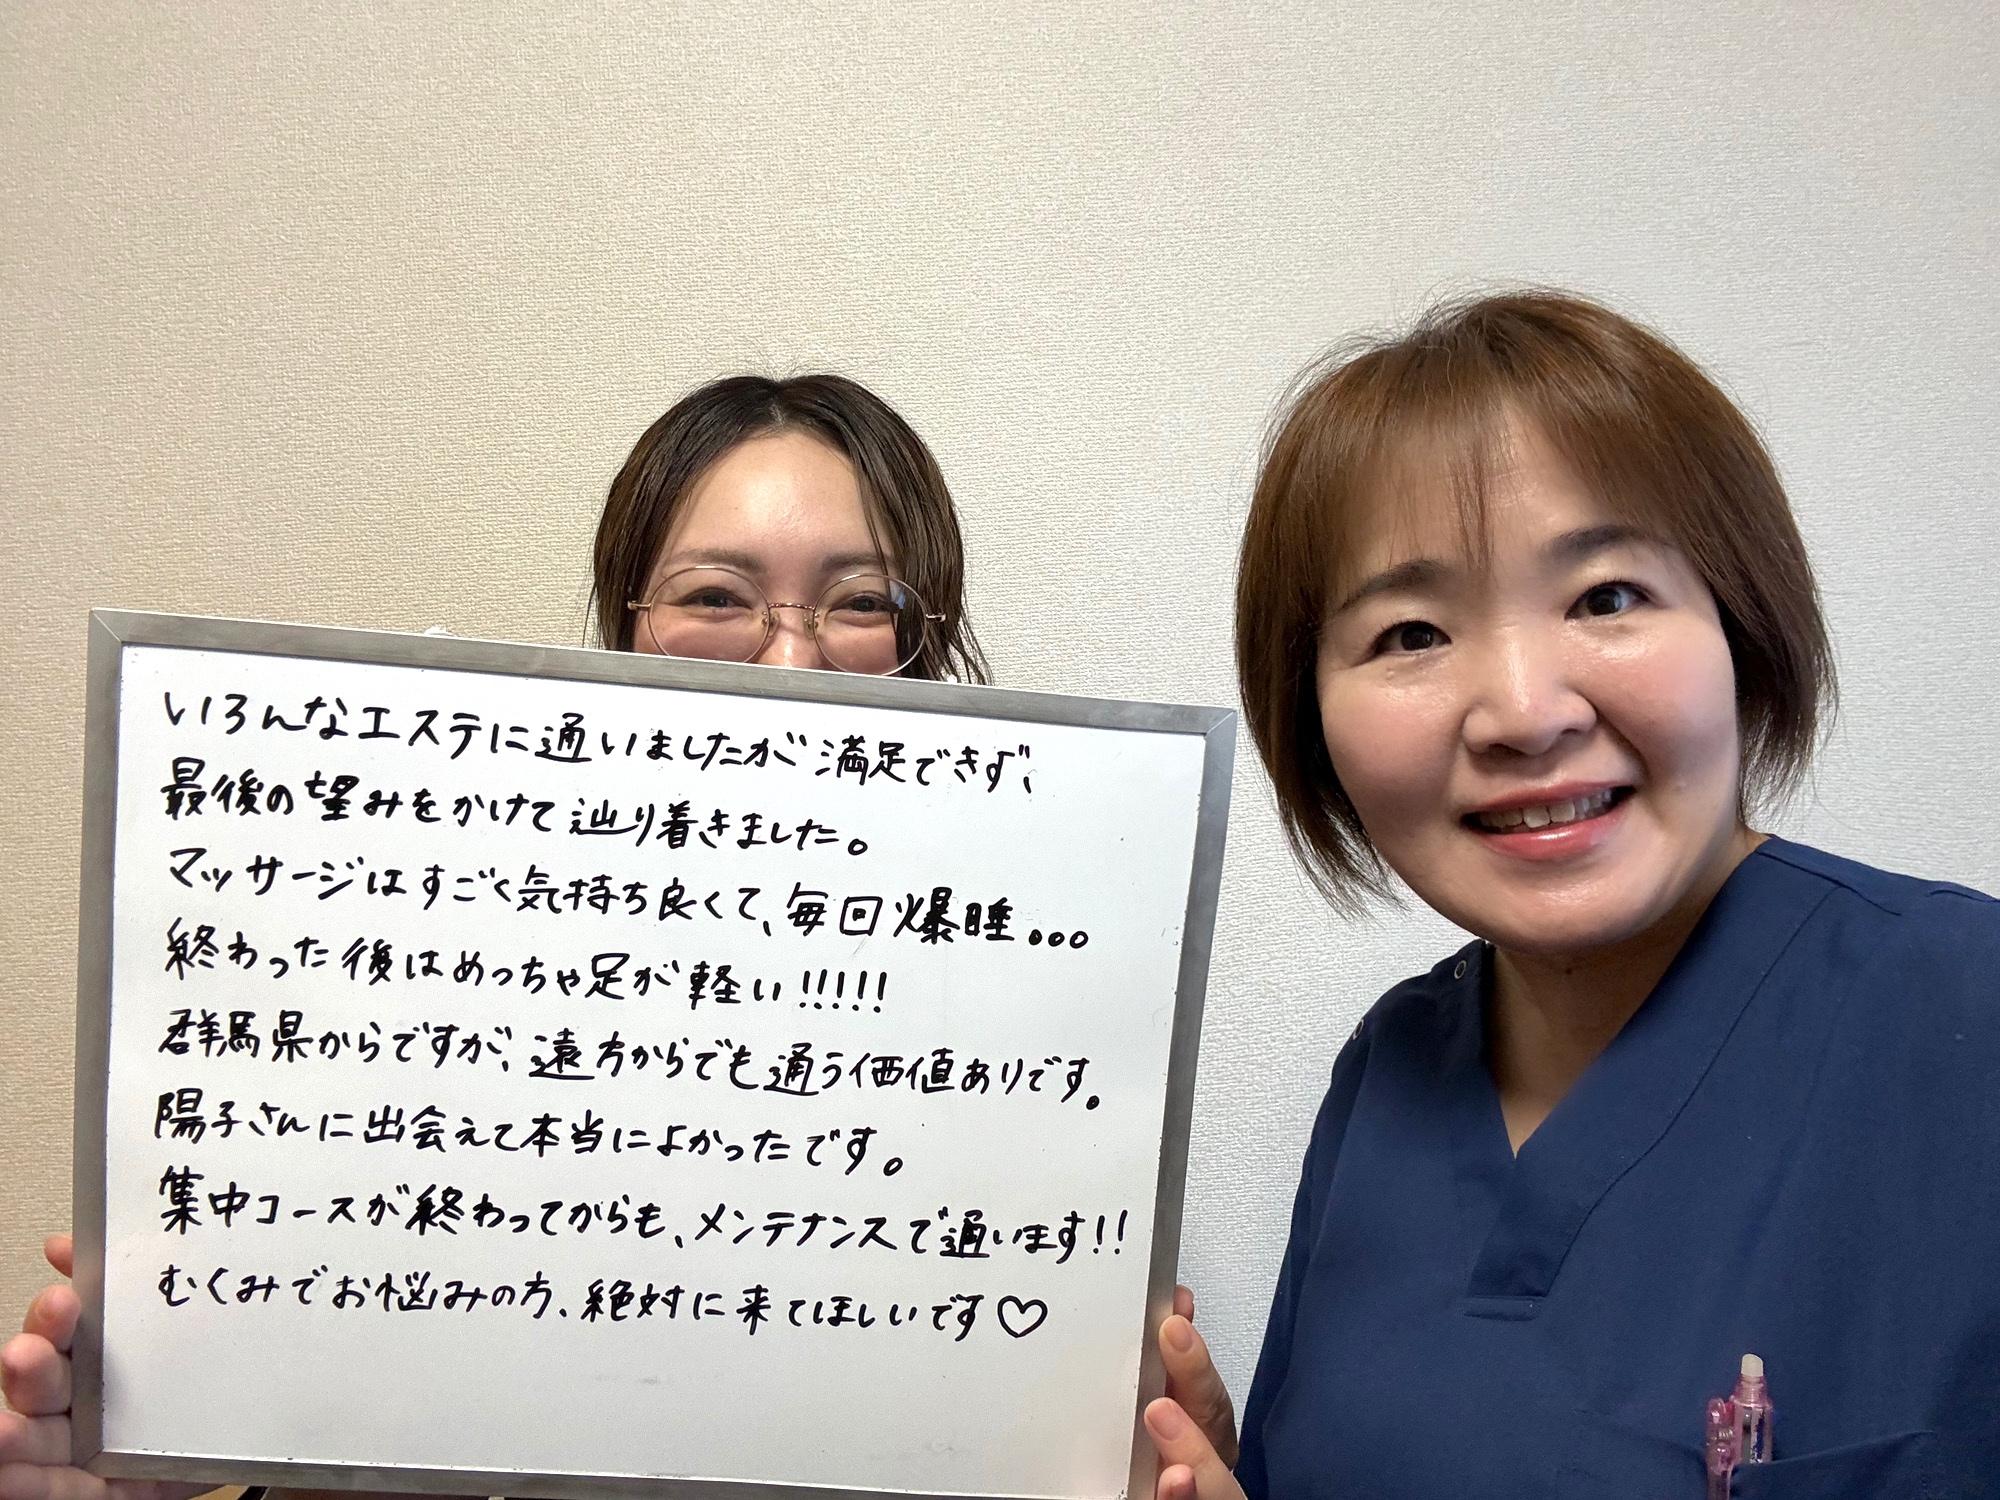 いろんなエステに通いましたが満足できず、
最後の望みをかけて辿り着きました。
マッサージはすごく気持ち良くて、毎回爆睡...
終わった後はめっちゃ足が軽い!!!!!
群馬県からですが、遠方からでも通う価値ありです。
陽子さんに出会えて本当によかったです。
集中コースが終わってからも、メンテナンスで通います!!
むくみでお悩みの方、絶対に来てほしいです♡